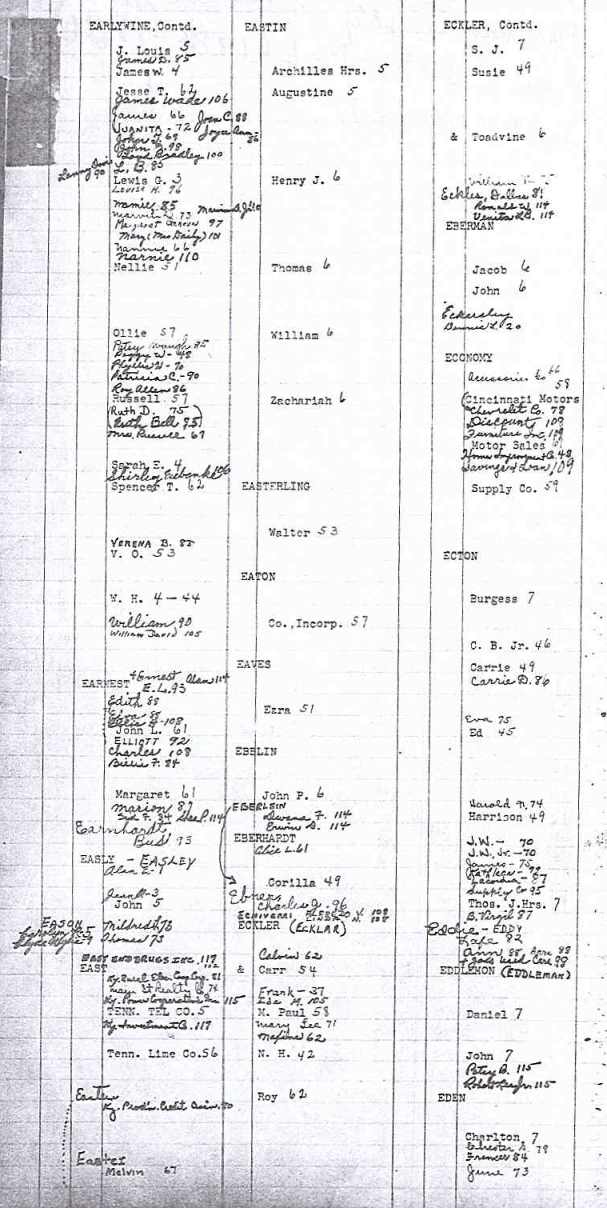 EARLYWINE, Contd.
J. Louis 5
James D. 85
James W. 4
Jesse T. 62
James Wade 106
James 66 Joen C. 88
JUANITA - 72
John J. 69
John G. 98
Boyd Bradley 100
L. B. 85
Lewis G. 3
Louise H. 96
Mamie 85
Marvin D. 73
Margaret 97
Mary (Mrs Daily) 101
Nannie 66
Narnie 110
Nellie 51
Ollie 57
Patsy 85
Peggy W - 48
Phyllis W - 70
Patricia C. - 90
Roy Allen 86
Russell 57
(Ruth D. 75)
(Ruth Bell 85)
Mrs. Russell 67
Sarah E. 4
Shirley Eubanks 106
Spencer T. 62
VERENA B. 82
V. O. 53
W. H. 4 - 44
William 90
William David 105
EARNEST
+ Ernest Alan 114
E. L. 93
Edith 88
John L. 61
ELLIOTT 92
Charles 108
Billie F. 84
Margaret 61
Marion 87
Earnhardt
Bud 93
EASLY - EASLEY
John 5
EASON
Mildred L 76
Thomas 73
EAST END DRUGS INC. 117
EAST
Ky. Rural Elec. Coop Corp. 81
Realty Co 74
Ky. Power Cooperative Inc 115
TENN. TEL CO. 5
Ky. Investment Co. 117
Tenn. Lime Co. 56
Easter
Ky. Prod'n. Credit Assn. 80
Easter
Melvin 67
EASTIN
Archilles Hrs. 5
Augustine 5
Henry J. 6
Thomas 6
William 6
Zachariah 6
EASTERLING
Walter 53
EATON
Co., Incorp. 57
EAVES
Ezra 51
EBBLIN
John P. 6
EBERLEIN
Devona F. 114
Erwin D. 114
EBERHARDT
Alice L. 61
Corilla 49
Ebners
Charles J. 96
ECKLER (ECKLAR)
Calvin 62
& Carr 54
Frank - 37
M. 105
M. Paul 58
Mary Lee 71
Maxine 62
N. H. 42
Roy 62
ECKLER, Contd.
S. J. 7
Susie 49
& Toadvine 6
William
Eckles, Dallas 81
Ronald W 114
Venita L B. 114
EBERMAN
Jacob 6
John 6
Eckersley
Dennis L. 20
ECONOMY
Accessories Co 66
58
Cincinnati Motors
Chevrolet Co. 78
Discount 109
Furniture Inc. 119
Motor Sales 61
Home Improvement Co. 48
Savings & Loan 109
Supply Co. 59
ECTON
Burgess 7
C. B. Jr. 46
Carrie 49
Carrie D. 86
Eva 75
Ed 45
Harold N. 74
Harrison 49
J. W. - 70
J. W., Jr. - 70
James - 75
Kathleen - 92
Supply Co 95
Thos. J. Hrs. 7
B. Virgil 87
Eddie - EDDY
Zafe 82
Ann 88
& Sons Used Cars 98
EDDLEMON (EDDLEMAN)
Daniel 7
John 7
Patsy B. 115
Robert 115
EDEN
Charlton 7
Chester A. 79
Frances 84
June 73